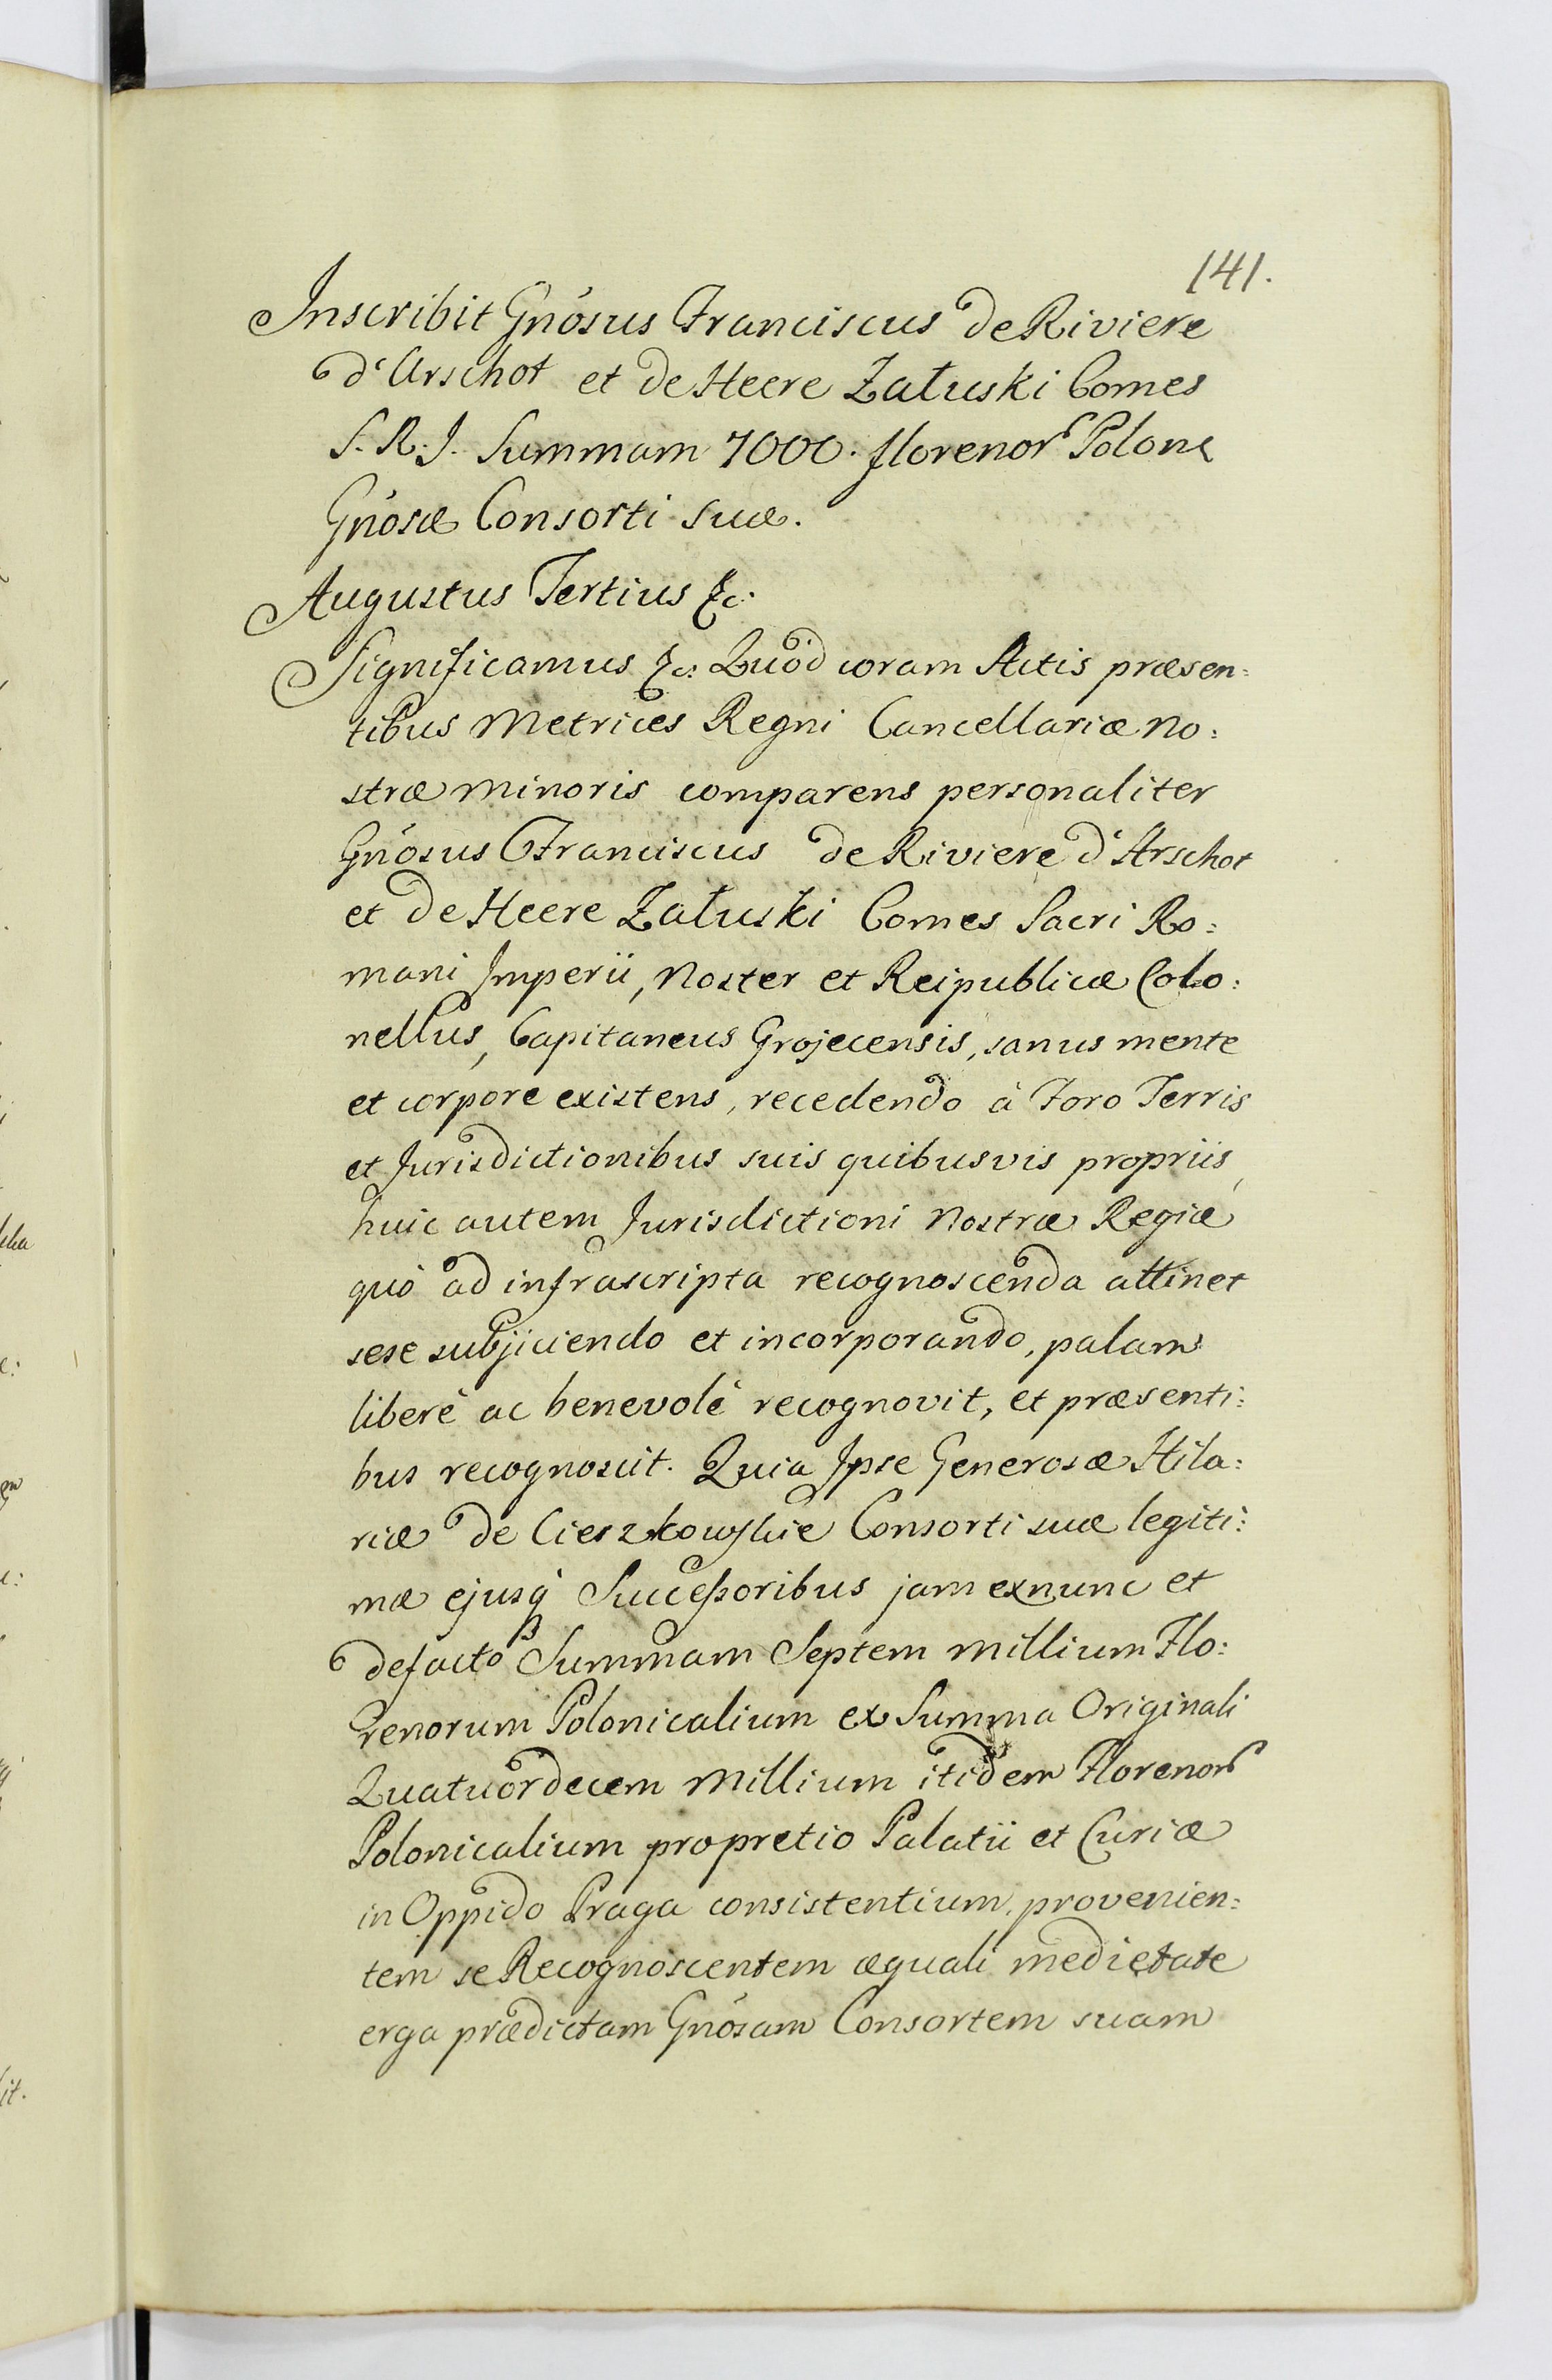 141.
Inscribit Gnósus Franciscus de Riviere
d'Arschot et de Heere Załuski Comes
S. R. J. Summam 7000. florenor Polon
Gnósæ Consorti suæ.
Augustus Tertius &c.
Significamus &c: Quòd coram Actis præsen:
tibus Metrices Regni Cancellariæ No:
stræ minoris comparens personaliter
Gnósus Franciscus de Riviere d'Arschot
et de Heere Załuski Comes Sacri Ro:
mani Imperii, Noster et Reipublicæ Colo:
nellus, Capitaneus Grojecensis, sanus mente
et corpore existens, recedendo à Foro Terris
et Jurisdictionibus suis quibusvis propriis,
huic autem Jurisdictioni Nostræ Regiæ
quò ad infrascripta recognoscenda attinet
sese subjiciendo et incorporando, palam
liberè ac benevolè recognovit, et præsenti:
bus recognoscit. Quia Ipse Generosæ Hila:
riæ de Cieszkowskie Consorti suæ legiti:
mæ ejusq Successoribus jam exnunc et
defacto Summam Septem millium Flo:
renorum Polonicalium ex Summa Originali
Quatuordecem Millium itidem Florenor
Polonicalium propretio Palatii et Curiæ
in Oppido Praga consistentium, provenien:
tem se Recognoscentem æquali medietate
erga prædictam Gnósam Consortem suam